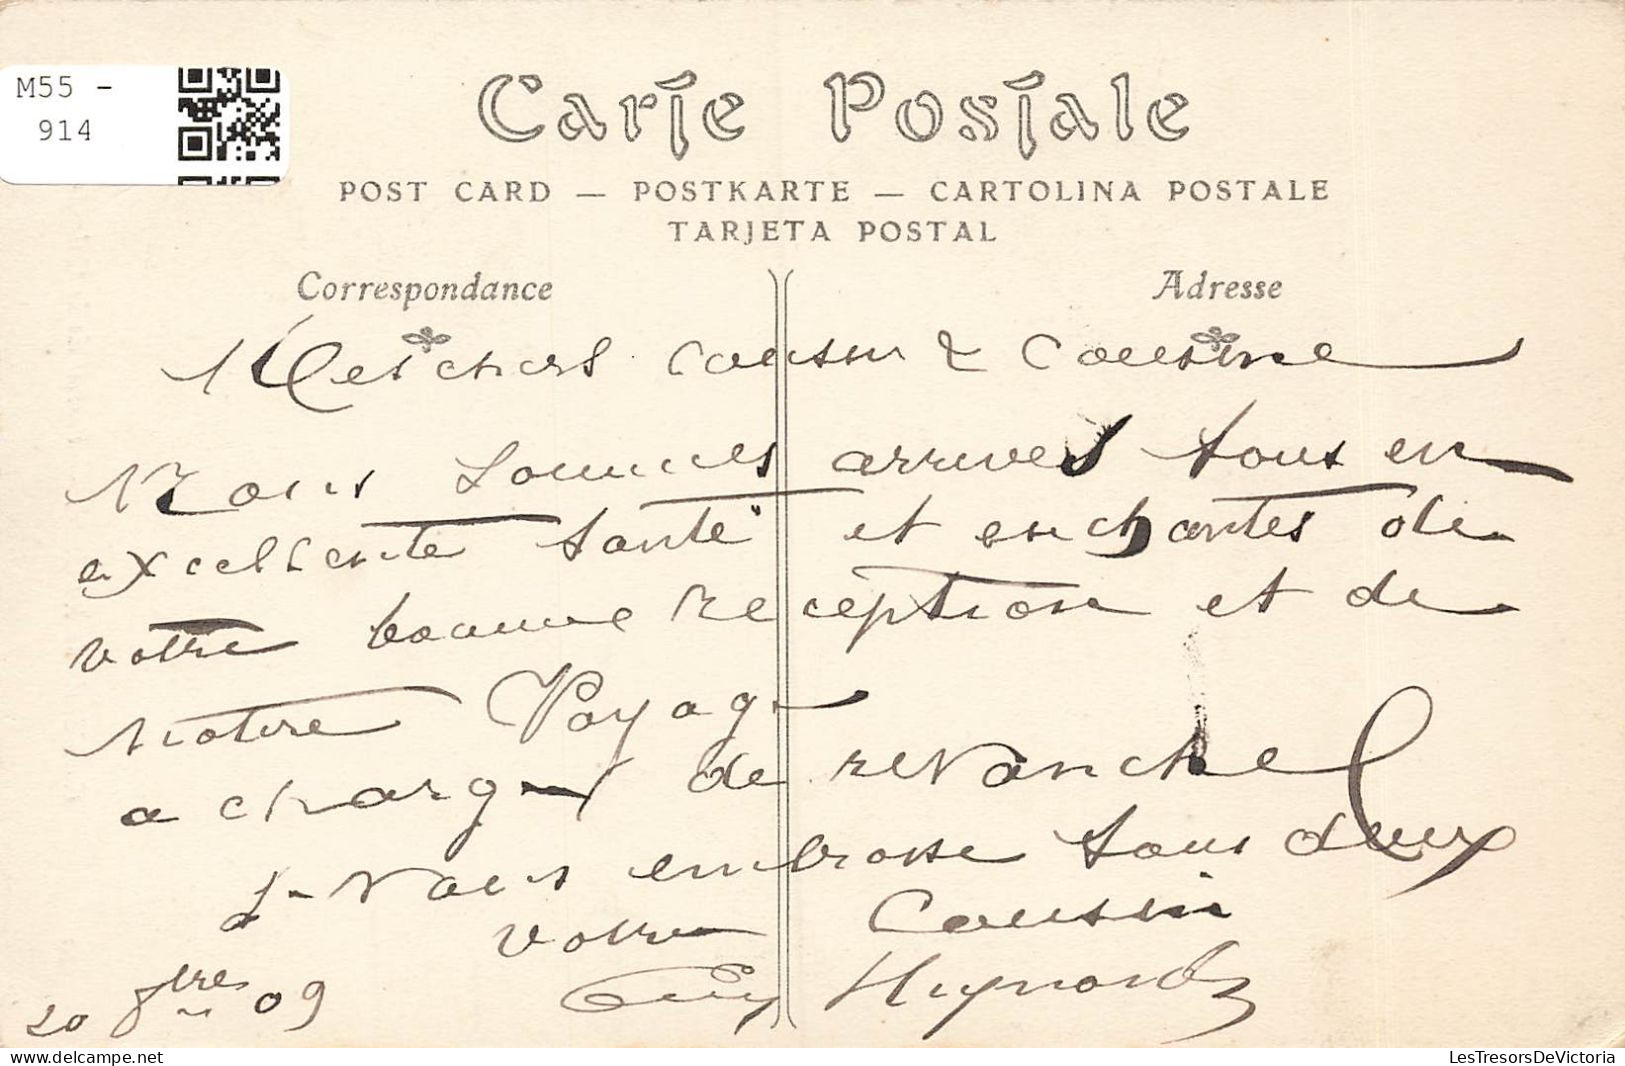 M55 -
914
Carte Postale
POST CARD — POSTKARTE — CARTOLINA POSTALE
TARJETA POSTAL
Correspondance
Adresse
Mes chers Cousin & Cousine
Nous sommes arrives tous en
excellente santé et enchantes de
votre bonne Reception et de
notre Voyage
a charge de revanche
Je vous embrasse tous deux
votre Cousin
20 8bre 09
LesTresorsDeVictoria
www.delcampe.net